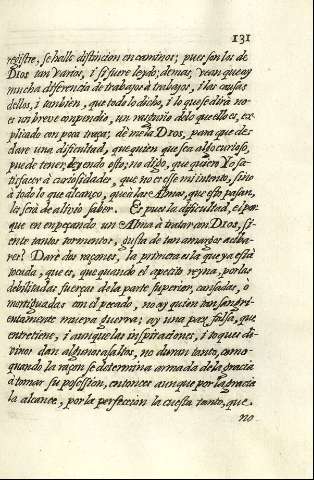 131
registre, se halle distincion en caminos; pues son los de
Dios tan varios, i si fuere leydo; demas, vean que ay
mucha diferencia de trabajos à trabajos, i las causas
dellos, i tambien, que todo lo dicho, i lo que se dirà no
es un breve conpendio, un rastrojo de lo que ello es, ex,
plicado con poca traça; de me la Dios, para que des
clare una dificultad, que quien que sea algo curioso,
puede tener, leyendo esto; no digo, que quiero Yo sa,
tisfacer à curiosidades, que no es ese mi intento, sino
à todo lo que alcanço, que à las Almas, que esto pasan,
les serà de alivio saber. Es pues la dificultad, el por
que en enpeçando un Alma à tratar con Dios, si,
ente tantos tormentos, i gusta de tan amargos aciba,
res? Darè dos raçones, la primera es la que ya està
tocada, que es, que quando el apetito reyna, por las
debilitadas fuerças de la parte superior, cansadas, o
mortiguadas con el pecado, no ay quien tan sangri,
entamente mueva guerra; ay una paz falsa, que
entretiene, i aunque las inspiraciones, i toques di,
vinos dan algunos asaltos, no duran tanto, como
quando la raçon se determina armada de la gracia
à tomar su posession, entonces aunque por la gracia
la alcance, por la perfeccion la cuesta tanto, que
no